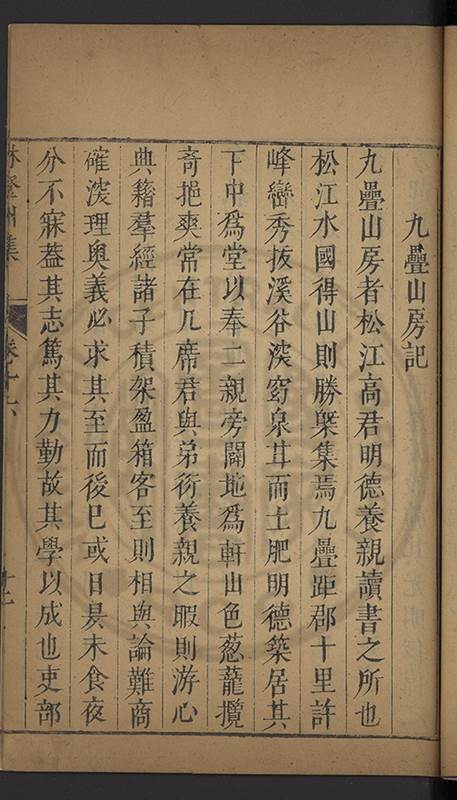 九疊山房記
九疊山房者松江高君明德養親讀書之所也
松江水國得山則勝槩集焉九疊距郡十里許
峰巒秀拔溪谷深窈泉甘而土肥明德築居其
下中爲堂以奉二親旁闢地爲軒山色葱蘢攬
奇挹爽常在几席君與弟衍養親之暇則游心
典籍羣經諸子積架盈箱客至則相與論難商
確深理奧義必求其至而後已或日昃未食夜
分不寐葢其志篤其力勤故其學以成也吏部
林登州集 卷十六